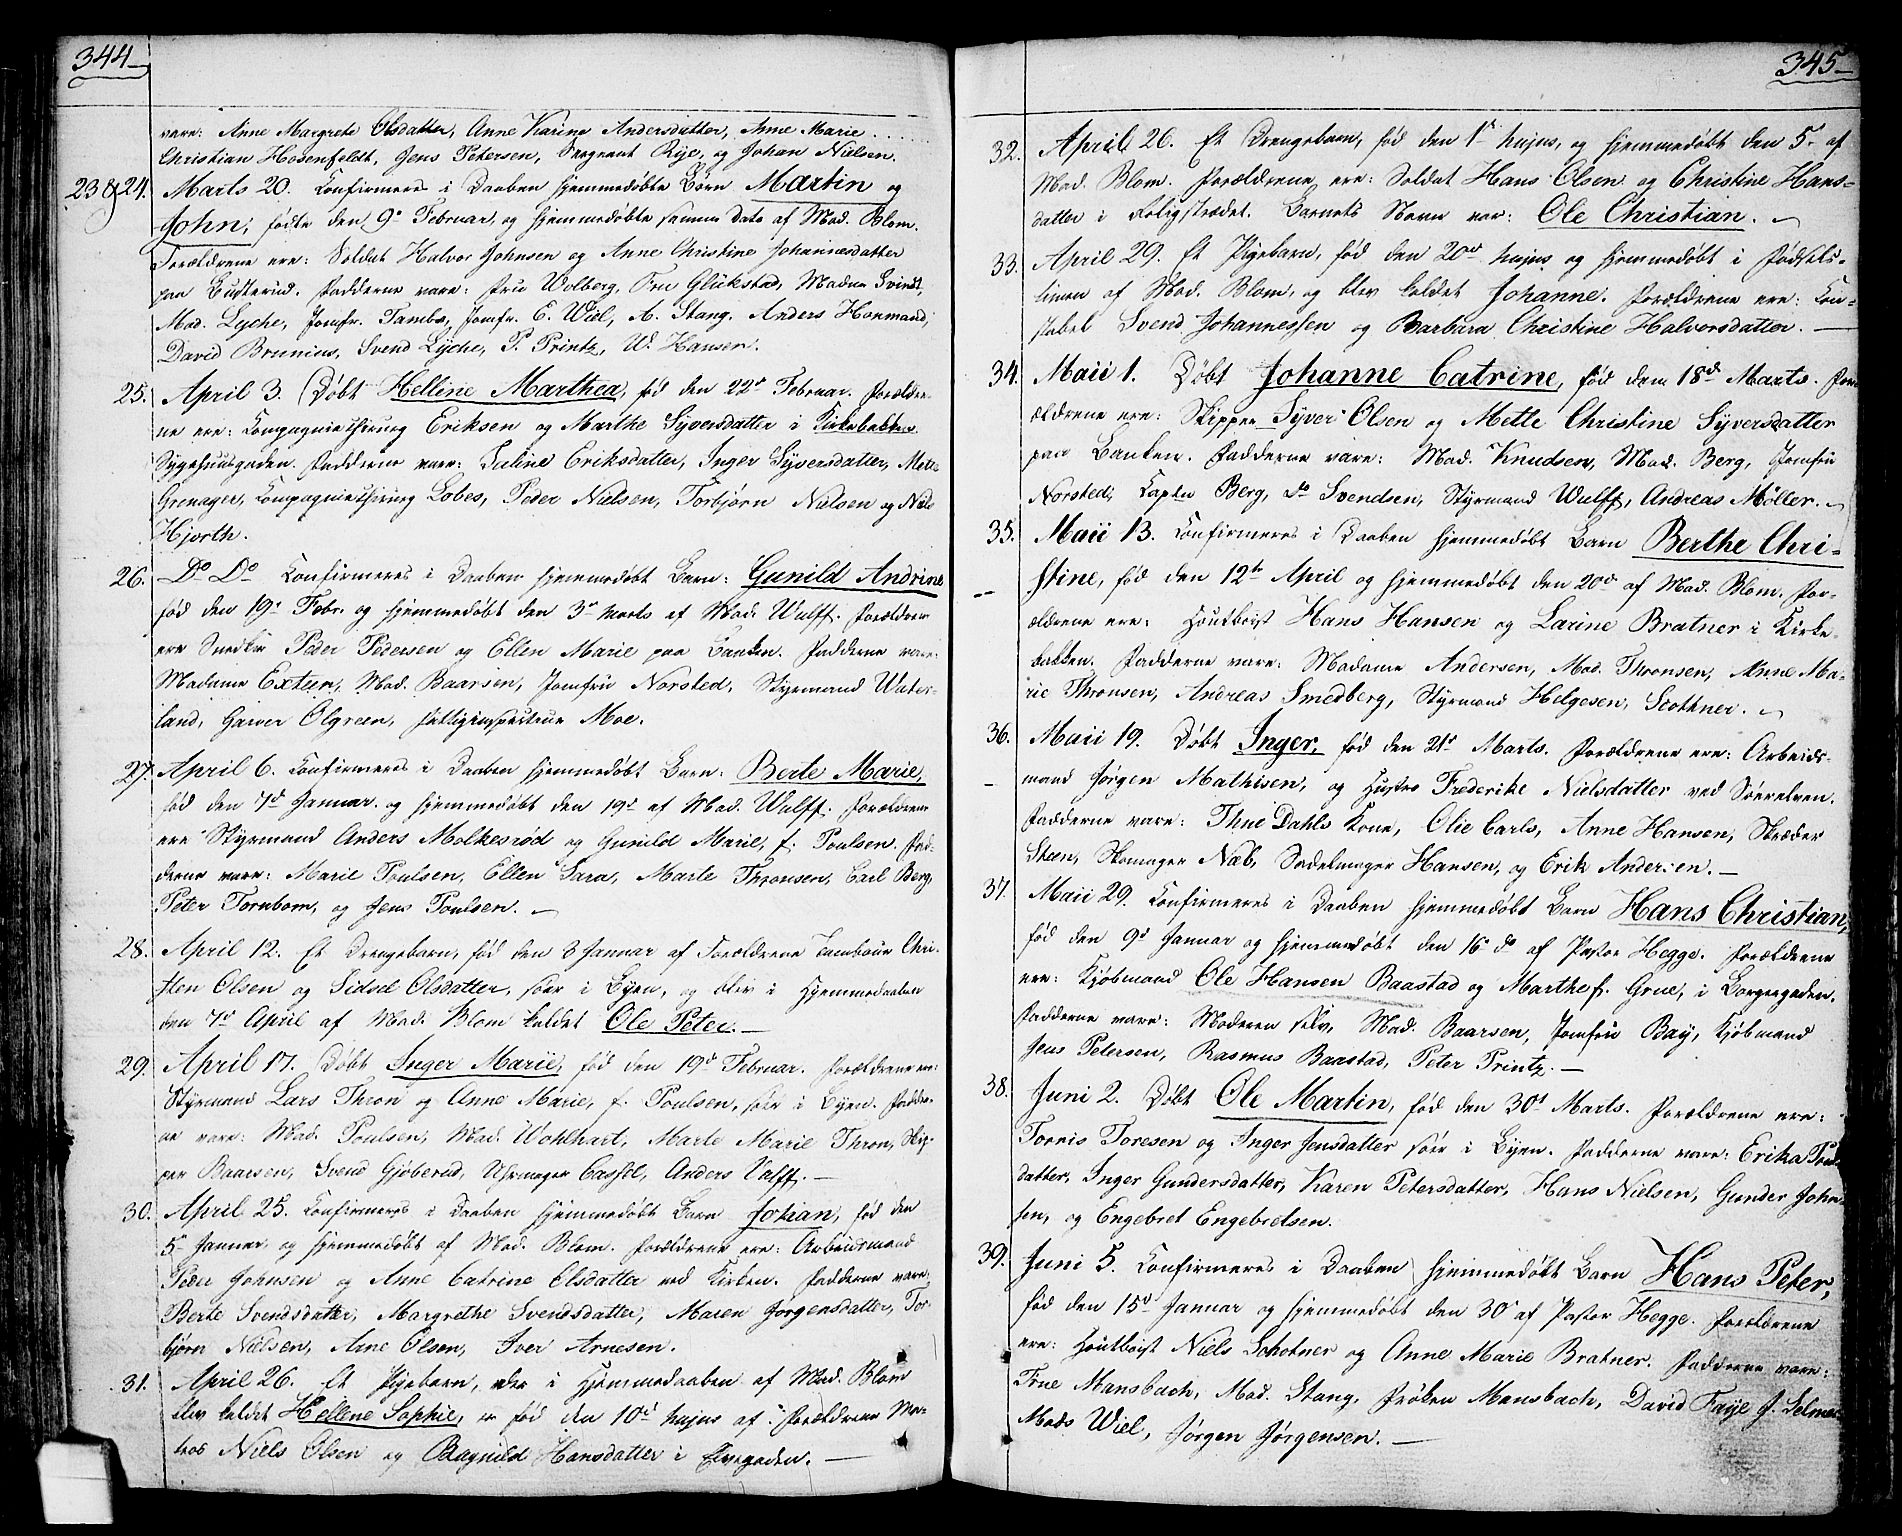 344
vare: Anne Margrete Olsdatter, Anne Karine Andersdatter, Anne Marie
Christian Hosenfeldt, Jens Petersen, Sergeant Rye, og Johan Nielsen.
23 & 24. Marts 20. Confirmeres i Daaben hjemmedøbte Børn Martin og
John, fødte den 9de Februar, og hjemmedøbte samme Dato af Mad. Blom.
Forældrene ere: Soldat Halvor Johnsen og Anne Christine Johannesdatter
paa Budterud. Fadderne vare: Fru Wolberg, Fru Glückstad, Madme Svindt,
Mad. Lyche, Jomfr. Tambs, Jomfr. E. Wiel, A. Stang, Anders Hanmand,
David Brunius, Svend Lÿche, P. Printz, W. Hansen.
25. April 3. Døbt Helline Marthea, fød den 22d Februar. Forældre-
ne ere: Compagniechirurg Eriksen og Marthe Syversdatter i Kirkebakken
Sygehuusgaden. Fadderne vare: Saline Eriksdatter, Inger Syversdatter, Mette
Grenager, Compagniechirurg Lobes, Peder Nielsen, Torbjørn Nielsen og Niels
Hjorth.
26. Do Do Confirmeres i Daaben hjemmedøbt Barn: Gunild Andrine
fød den 19de Febr. og hjemmedøbt den 3de Marts af Mad. Wulff. Forældrene
ere Snedker Peder Pedersen og Ellen Marie paa Banken. Fadderne vare:
Madame Exteen, Mad. Baarsen, Jomfru Norsted, Styrmand Water-
land, Garver Olgreen, Fattiginspecteur Moe.
27. April 6. Confirmeres i Daaben hjemmedøbt Barn: Berte Marie,
fød den 7d Januar. og hjemmedøbt den 19d af Mad. Wulff. Forældrene
ere Styrmand Anders Molkesrød og Gunild Marie, f. Poulsen. Fad-
derne vare: Marie Poulsen, Ellen Sara, Marte Thronsen, Carl Berg,
Peter Tornbom, og Jens Poulsen. –
28. April 12. Et Drengebarn, fød den 8 Januar af Forældrene Tambour Chri-
sten Olsen og Sidsel Olsdatter, her i Byen, og blev i Hjemmedaaben
den 7d April af Mad. Blom kaldet Ole Peter. –
29. April 17. Døbt Inger Marie, fød den 19d Februar. Forældrene ere:
Styrmand Lars Thron og Anne Marie, f. Poulsen, her i Byen. Fadder-
ne vare: Mad. Poulsen, Mad. Wohlhart, Marte Marie Thron, Skip-
per Baarsen, Svend Gjøberud, Uhrmager Cassel, Anders Valff. –
30. April 25. Confirmeres i Daaben hjemmedøbt Barn Johan, fød den
5te Januar og hjemmedøbt af Mad. Blom. Forældrene ere: Arbeidsmand
Peder Johnsen og Anne Catrine Olsdatter ved Kirken. Fadderne vare:
Berte Svendsdatter, Margrethe Svendsdatter, Maren Jørgensdatter, Tor-
bjørn Nielsen, Arne Olsen, Iver Arnesen.
31. April 26. Et Pigebarn, der i Hjemmedaaben af Mad. Blom
blev kaldet Hellene Sophie, er fød den 10d hujus af Forældrene Ma-
tros Niels Olsen og Ragnild Hansdatter i Elvegaden. –
345
32. April 26. Et Drengebarn, fød den 1ste hujus, og hjemmedøbt den 5te af
Mad. Blom. Forældrene ere: Soldat Hans Olsen og Christine Hans-
datter i Boligstrædet. Barnets Navn var: Ole Christian. –
33. April 29. Et Pigebarn, fød den 20de hujus og hjemmedøbt i Fødsels-
timen af Mad. Blom, og blev kaldet Johanne. Forældrene ere: Con-
stabel Svend Johannessen og Barbara Christine Halvorsdatter. –
34. Maii 1. Døbt Johanne Catrine, fød dem 18d Marts. For-
ældrene ere: Skipper Syver Olsen og Mette Christine Syversdatter
paa Banken. Fadderne vare: Mad. Knudsen, Mad. Berg, Jomfru
Norsted, Captn Berg, do Svendsen, Styrmand Wulff, Andreas Møller. –
35. Maii 13. Confirmeres i Daaben hjemmedøbt Barn Berthe Chri-
stine, fød den 12te April og hjemmedøbt den 20de af Mad. Blom. For-
ældrene ere: Houtboist Hans Hansen og Larine Bratner i Kirke-
bakken. Fadderne vare: Madame Andersen, Mad. Thronsen, Anne Ma-
rie Thronsen, Andreas Smedberg, Styrmand Helgesen, Scothner. –
36. Maii 19. Døbt Inger, fød den 21d Marts. Forældrene ere: Arbeids-
mand Jørgen Mathisen, og Hustro Frederike Nielsdatter ved Søerelven.
Fadderne vare: Thue Dahls Kone, Olie Carls, Anne Hansen, Skræder
Steen, Skomager Næb, Sadelmager Hansen, og Erik Andersen. –
37. Maii 29. Confirmeres i Daaben hjemmedøbt Barn Hans Christian,
fød den 9d Januar og hjemmedøbt den 16de do af Pastor Hegge. Forældrene
ere: Kjøbmand Ole Hansen Baastad og Marthe f. Grue, i Borgergaden.
Fadderne vare: Moderen selv, Mad. Baarsen, Jomfru Bay, Kjøbmand
Jens Petersen, Rasmus Baastad, Peter Printz. –
38. Juni 2. Døbt Ole Martin, fød den 30d Marts. Forældrene ere:
Torris Toresen og Inger Jensdatter her i Byen. Fadderne vare: Erika
datter, Inger Gundersdatter, Karen Petersdatter, Hans Nielsen, Gunder John-
sen, og Engebret Engebretsen.
39. Juni 5. Confirmeres i Daaben hjemmedøbt Barn Hans Peter,
fød den 15d Januar og hjemmedøbt den 30 af Pastor Hegge. Forældrene
ere: Houtboist Niels Schotner og Anne Marie Bratner. Fadderne vare:
Frue Mansbach, Mad. Stang, Frøken Mansbach, David Faÿe J. Selmer
Mads Wiel, Jørgen Jørgensen. –